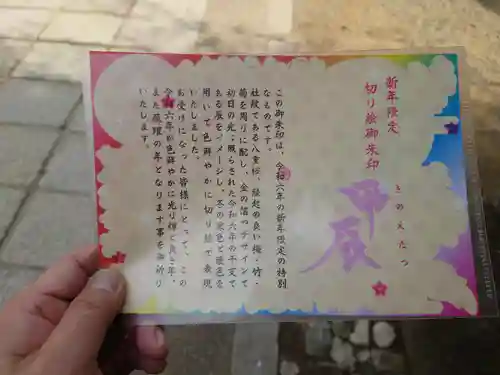 新年限定
切り絵御朱印
きのえたつ
甲辰
この御朱印は、令和六年の新年限定の特別
なものです。
社紋である八重桜、縁起の良い梅・竹・
菊を周りに配し、金の箔のデザインで
初日の光に照らされた令和六年の干支で
ある辰をイメージし、冬の寒色と暖色を
用いて色鮮やかに切り絵で表現
いたしました。
お受けになった皆様にとって、この
令和六年が色鮮やかに光り輝く良き年、
また飛躍の年となります事をお祈り
いたします。